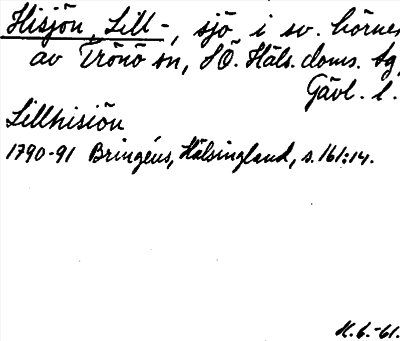 Hisjön, Lill-, sjö i sv. hörnet
av Trönö sn, SÖ. Häls. doms. tg,
Gävl. l.
Lillhisiön
1790-91 Bringéus, Hälsingland, s. 161:14.
H.G.-61.